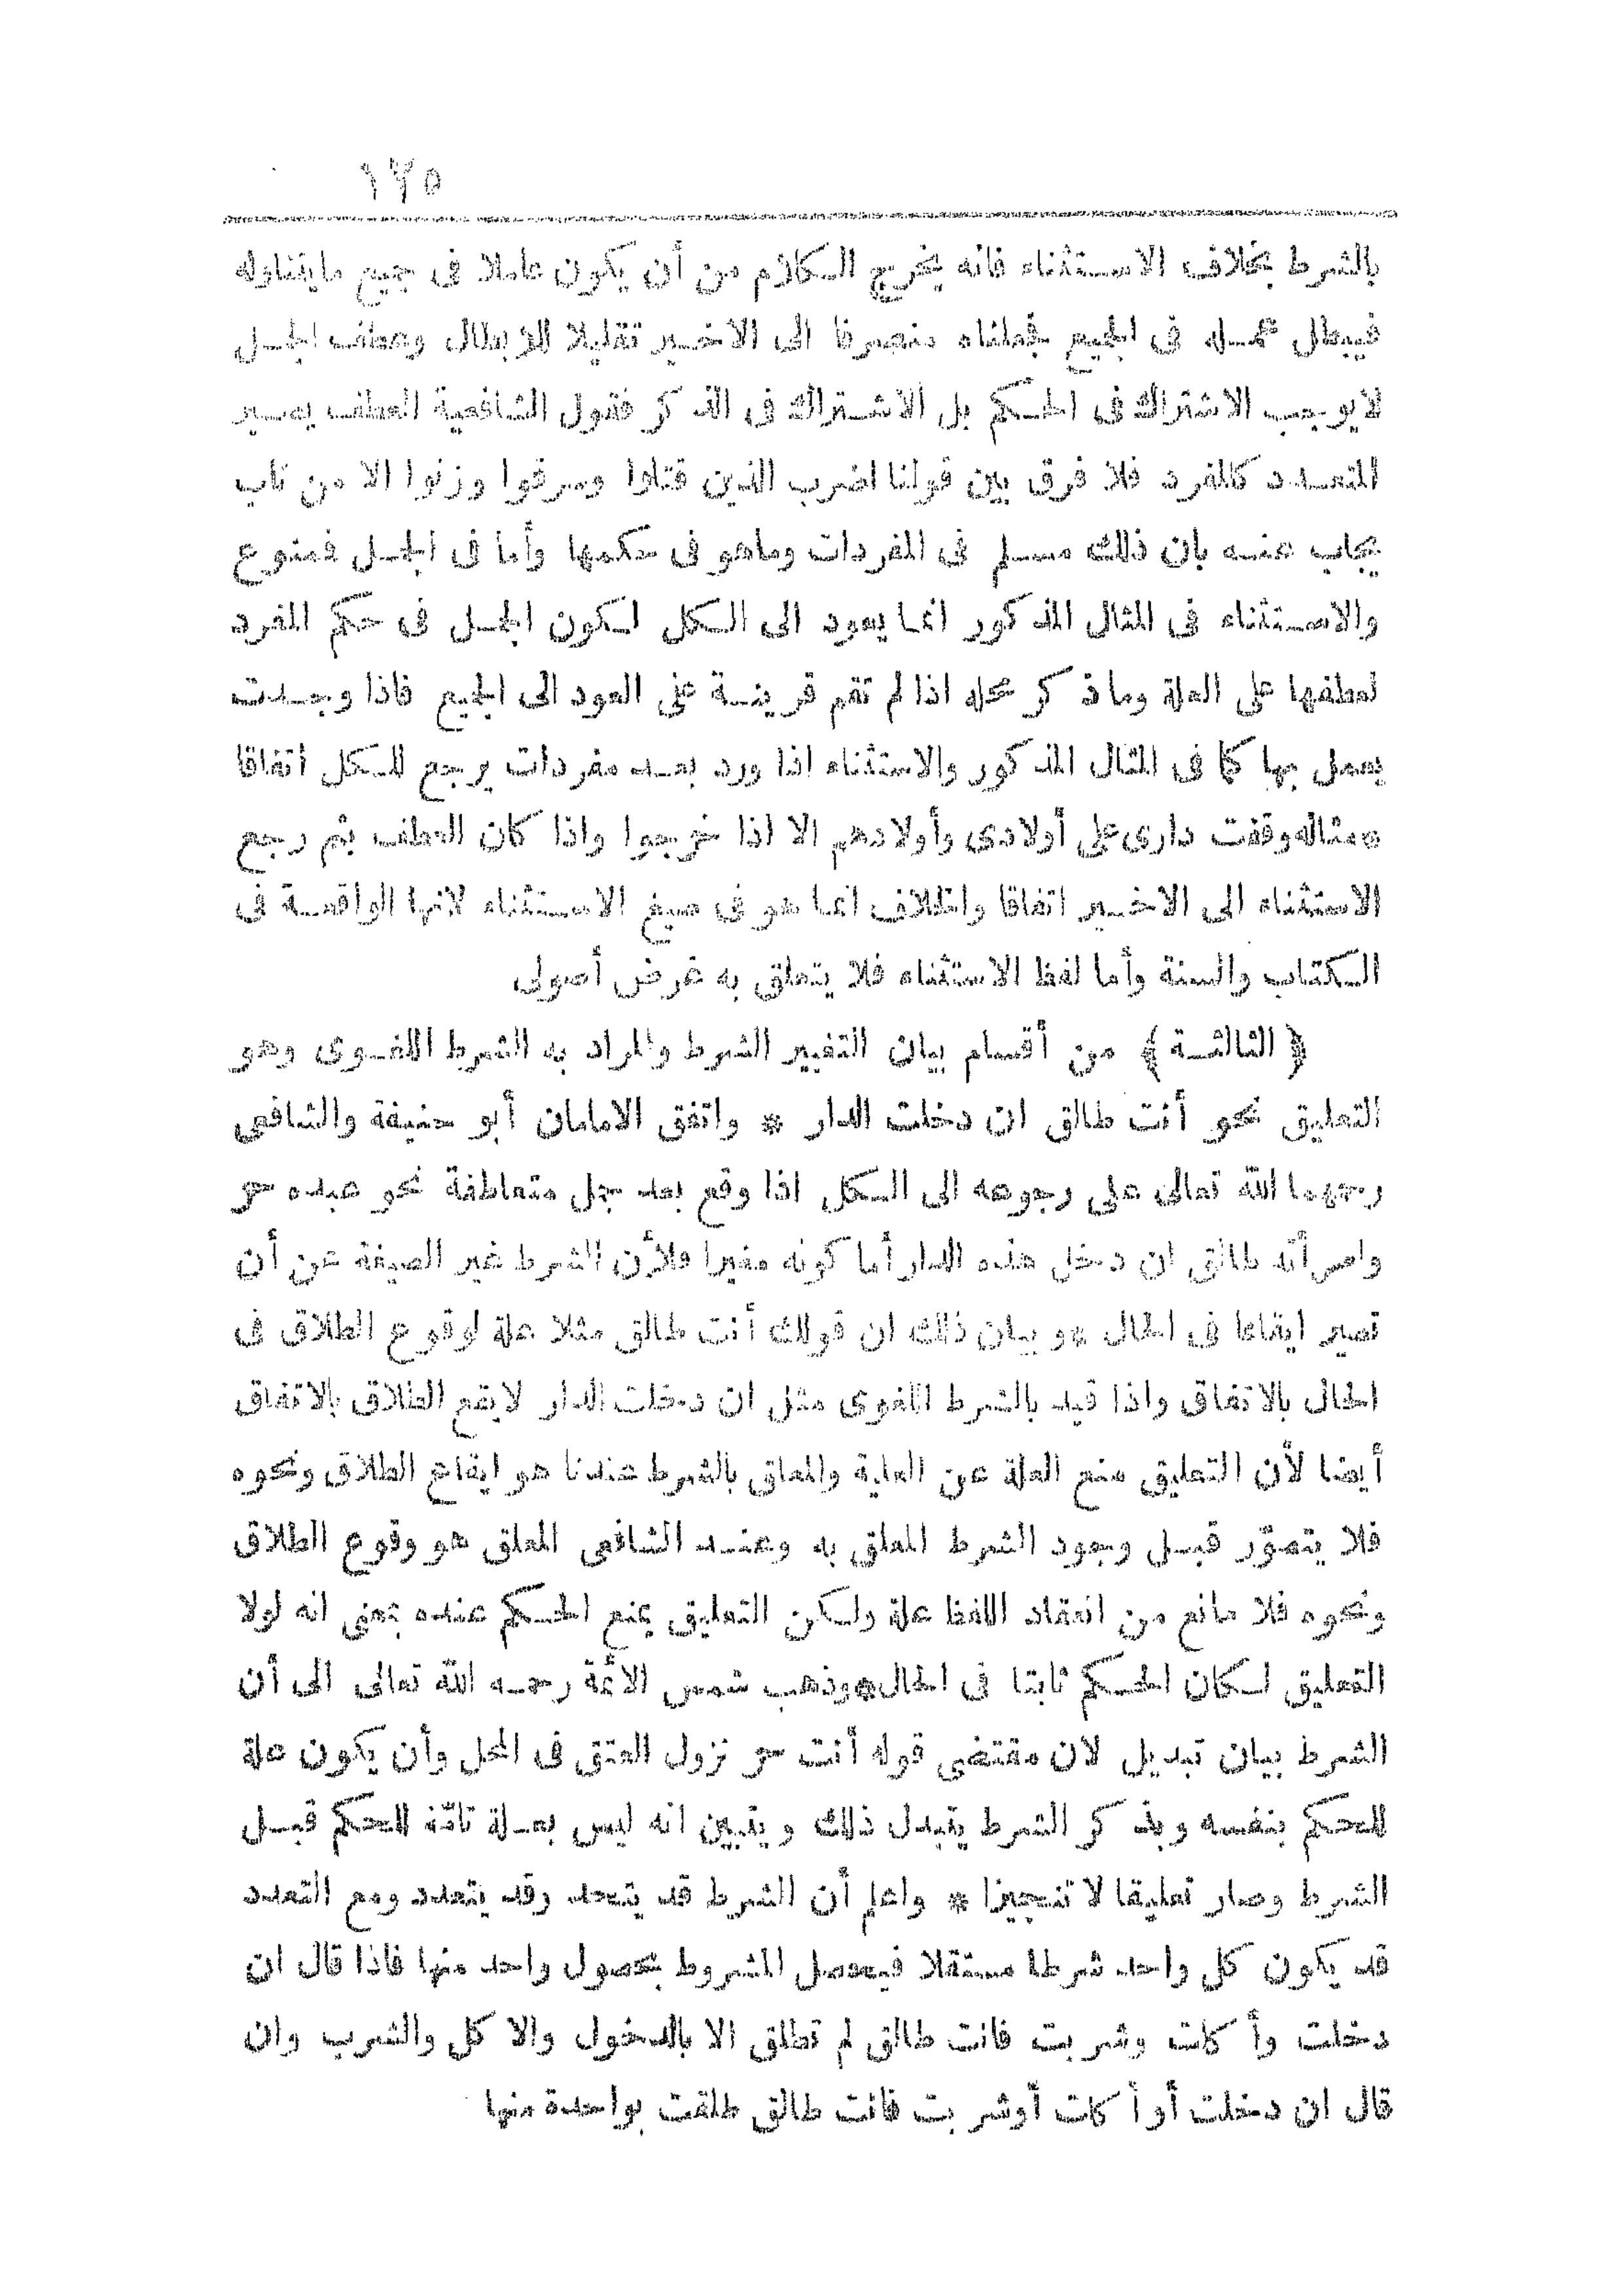 ١٢٥
بالشرط بخلاف الاستثناء فانه يخرج الكلام من أن يكون عاملا فى جميع مايتناوله
فيبطل عمله فى الجميع فجعلناه منصرفا الى الاخير تقليلا للابطال وعطف الجمل
لايوجب الاشتراك فى الحكم بل الاشتراك فى الذكر فقول الشافعية العطف يصير
المتعدد كالمفرد فلا فرق بين قولنا اضرب الذين قتلوا وسرقوا وزنوا الا من تاب
يجاب عنه بان ذلك مسلم فى المفردات وماهو فى حكمها وأما فى الجمل فمنوع
والاستثناء فى المثال المذكور انما يعود الى الكل لكون الجمل فى حكم المفرد
لعطفها على الصلة وماذكر محله اذا لم تقم قرينة على العود الى الجميع فاذا وجدت
يعمل بها كما فى المثال المذكور والاستثناء اذا ورد بعد مفردات يرجع للكل اتفاقا
* مثاله وقفت دارى على أولادى وأولادهم الا اذا خرجوا واذا كان العطف بثم رجع
الاستثناء الى الاخير اتفاقا والخلاف انما هو فى صيغ الاستثناء لانها الواقعة فى
الكتاب والسنة وأما لفظ الاستثناء فلا يتعلق به غرض أصولى
﴿ الثالثة ﴾ من أقسام بيان التغيير الشرط والمراد به الشرط اللغوى وهو
التعليق نحو أنت طالق ان دخلت الدار * واتفق الامامان أبو حنيفة والشافعى
رحمهما الله تعالى على رجوعه الى الكل اذا وقع بعد جمل متعاطفة نحو عبده حر
وامرأته طالق ان دخل هذه الدار أما كونه مغيرا فلأن الشرط غير الصيغة عن أن
تصير ايقاعا فى الحال * وبيان ذلك ان قولك أنت طالق مثلا علة لوقوع الطلاق فى
الحال بالاتفاق واذا قيد بالشرط اللغوى مثل ان دخلت الدار لايقع الطلاق بالاتفاق
أيضا لأن التعليق منع العلة عن العلية والمعلق بالشرط عندنا هو ايقاع الطلاق ونحوه
فلا يتصوّر قبل وجود الشرط المعلق به وعند الشافعى المعلق هو وقوع الطلاق
ونحوه فلا مانع من انعقاد اللفظ علة ولكن التعليق يمنع الحكم عنده بمعنى انه لولا
التعليق لكان الحكم ثابتا فى الحال * وذهب شمس الائمة رحمه الله تعالى الى أن
الشرط بيان تبديل لان مقتضى قوله أنت حر نزول العتق فى المحل وأن يكون علة
للحكم بنفسه وبذكر الشرط يتبدل ذلك ويتبين انه ليس بعلة تامّة للحكم قبل
الشرط وصار تعليقا لا تنجيزا * واعلم أن الشرط قد يتحد وقد يتعدد ومع التعدد
قد يكون كل واحد شرطا مستقلا فيحصل المشروط بحصول واحد منها فاذا قال ان
دخلت وأكلت وشربت فانت طالق لم تطلق الا بالدخول والاكل والشرب وان
قال ان دخلت أو أكلت أوشربت فانت طالق طلقت بواحدة منها